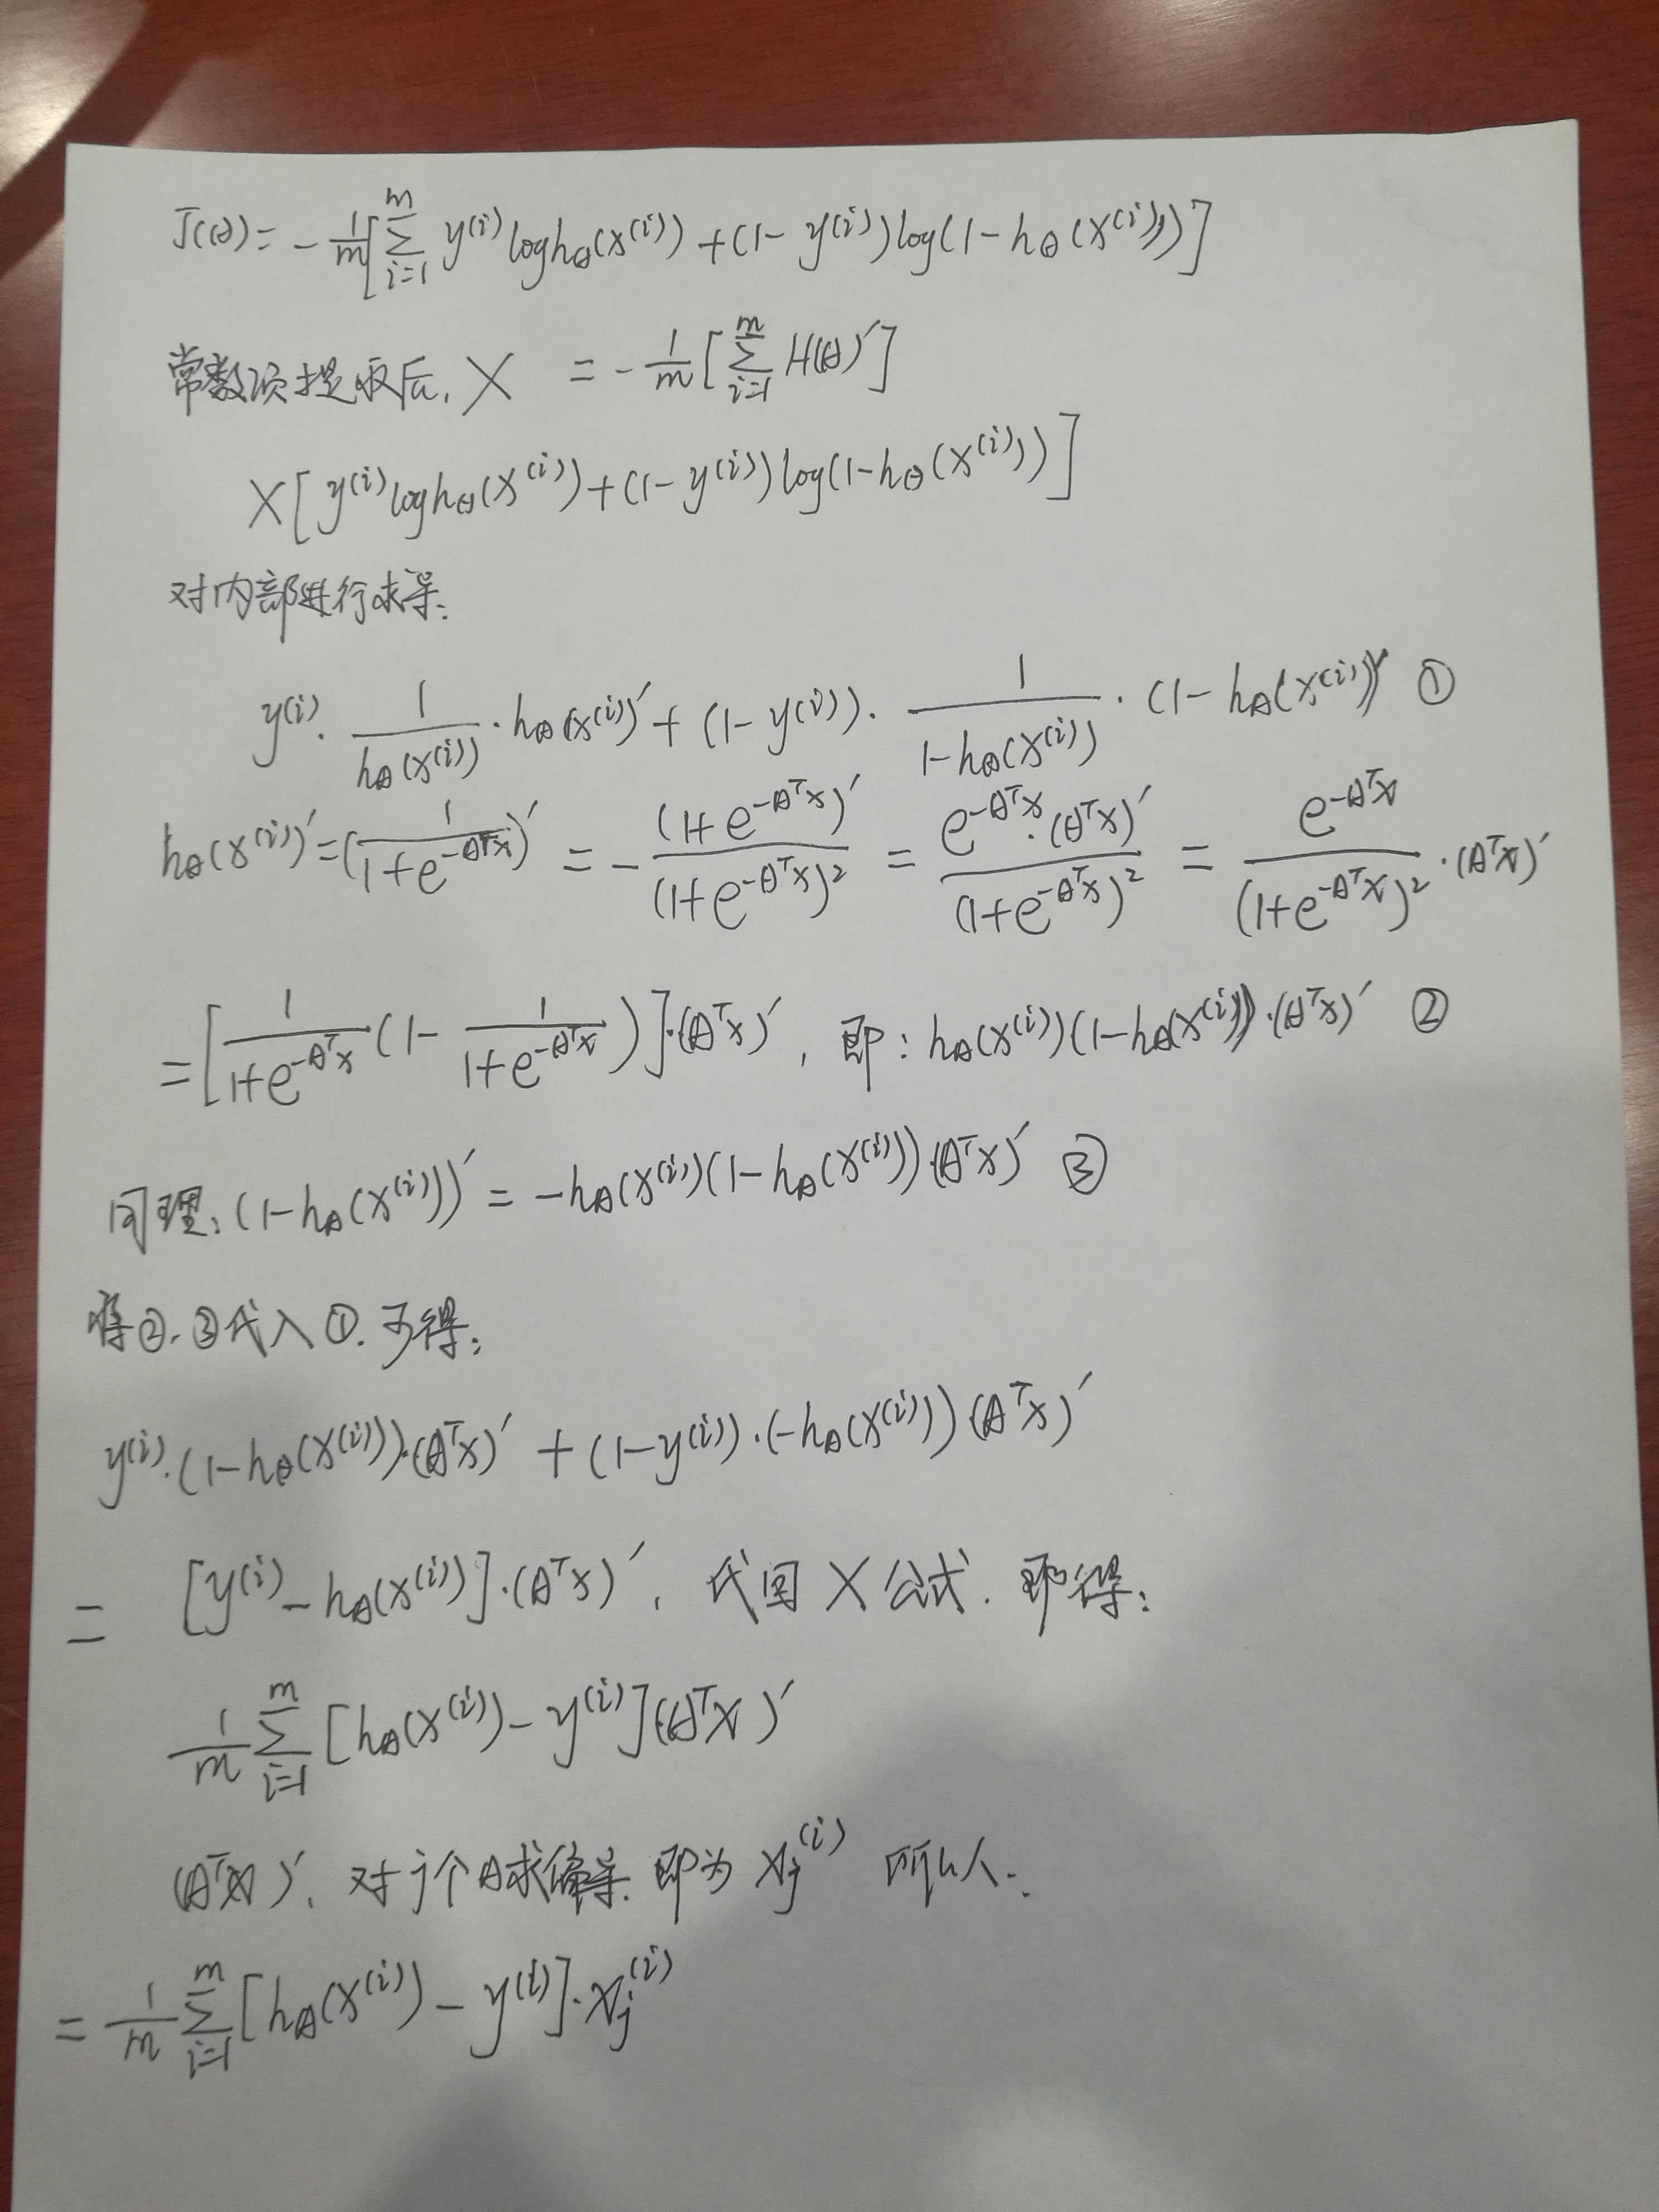 J(θ) = - 1/m [ Σ_{i=1}^{m} y^(i) log h_θ(x^(i)) + (1 - y^(i)) log(1 - h_θ(x^(i))) ]
常数项提取后, X = - 1/m [ Σ_{i=1}^{m} H(θ)' ]
X[ y^(i) log h_θ(x^(i)) + (1 - y^(i)) log(1 - h_θ(x^(i))) ]
对内部进行求导:
y^(i) · 1/h_θ(x^(i)) · h_θ(x^(i))' + (1 - y^(i)) · 1/(1 - h_θ(x^(i))) · (1 - h_θ(x^(i)))' ①
h_θ(x^(i))' = (1/(1+e^{-θ^T x}))' = - (1+e^{-θ^T x})'/(1+e^{-θ^T x})² = e^{-θ^T x}·(θ^T x)'/(1+e^{-θ^T x})² = e^{-θ^T x}/(1+e^{-θ^T x})² · (θ^T x)'
= [ 1/(1+e^{-θ^T x}) (1 - 1/(1+e^{-θ^T x})) ]·(θ^T x)', 即: h_θ(x^(i))(1 - h_θ(x^(i)))·(θ^T x)' ②
同理: (1 - h_θ(x^(i)))' = - h_θ(x^(i))(1 - h_θ(x^(i)))·(θ^T x)' ③
将②,③代入①.可得:
y^(i)·(1 - h_θ(x^(i)))·(θ^T x)' + (1 - y^(i))·(-h_θ(x^(i)))(θ^T x)'
= [y^(i) - h_θ(x^(i))]·(θ^T x)', 代回X公式.即得:
1/m Σ_{i=1}^{m} [h_θ(x^(i)) - y^(i)](θ^T x)'
(θ^T x)', 对j个θ求偏导.即为 x_j^(i) 所以:
= 1/m Σ_{i=1}^{m} [h_θ(x^(i)) - y^(i)]·x_j^(i)